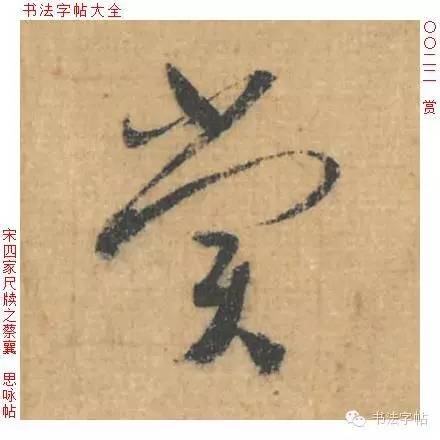 书法字帖大全
〇〇二二 赏
赏
宋四家尺牍之蔡襄 思咏帖
书法字帖